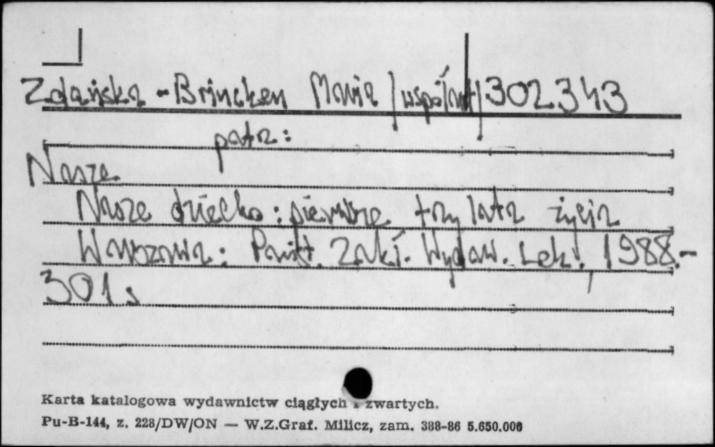 Zdańska-Brincken Maria /współaut/ 302343
patrz:
Nasze
Nasze dziecko: pierwsze trzy lata życia
Warszawa: Państ. Zakł. Wydaw. Lek., 1988.-
301 s
Karta katalogowa wydawnictw ciągłych i zwartych.
Pu-B-144, z. 228/DW/ON — W.Z.Graf. Milicz, zam. 388-86 5.650.000